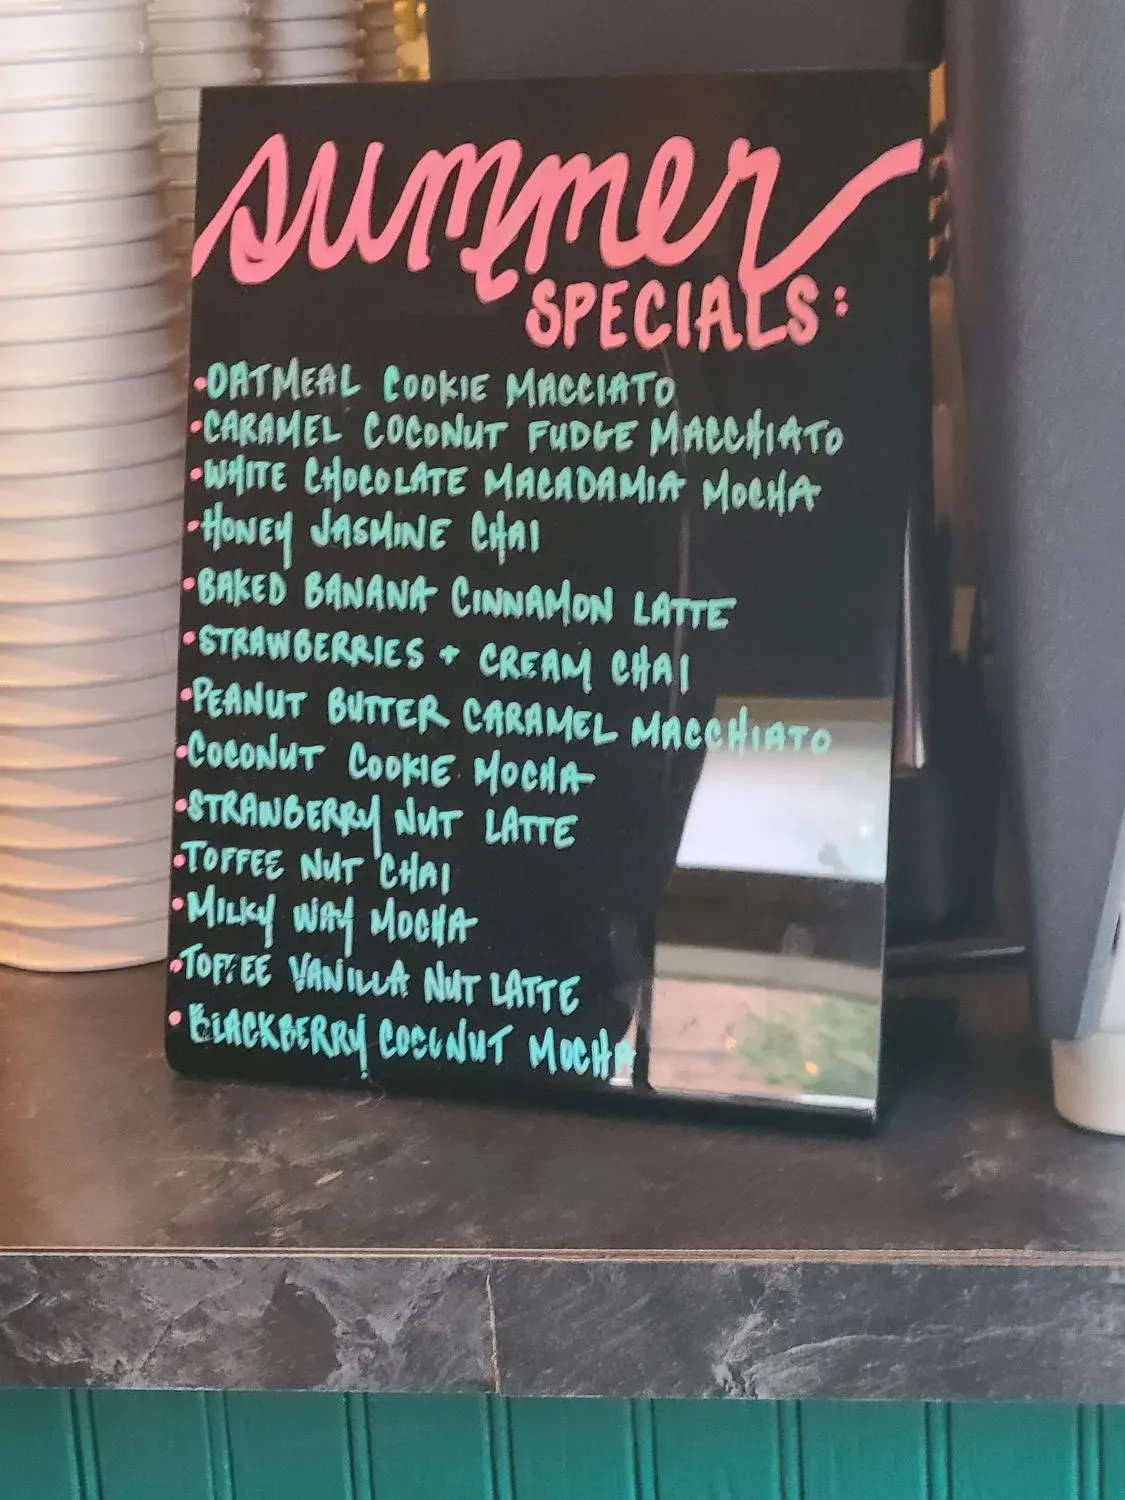 summer
SPECIALS:
•OATMEAL COOKIE MACCIATO
•CARAMEL COCONUT FUDGE MACCHIATO
•WHITE CHOCOLATE MACADAMIA MOCHA
•HONEY JASMINE CHAI
•BAKED BANANA CINNAMON LATTE
•STRAWBERRIES + CREAM CHAI
•PEANUT BUTTER CARAMEL MACCHIATO
•COCONUT COOKIE MOCHA
•STRAWBERRY NUT LATTE
•TOFFEE NUT CHAI
•MILKY WAY MOCHA
•TOFFEE VANILLA NUT LATTE
•BLACKBERRY COCONUT MOCHA